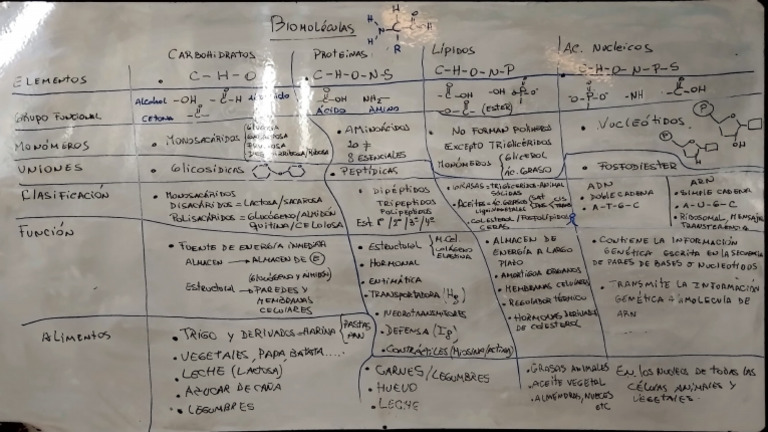 BIOMOLÉCULAS
CARBOHIDRATOS PROTEINAS LÍPIDOS AC. NUCLEICOS
ELEMENTOS • C-H-O • C-H-O-N-S C-H-O-N-P • C-H-O-N-P-S
GRUPO FUNCIONAL
Alcohol -OH
CETONA
-OH NH2
ÁCIDO AMINO
(ESTER)
-NH -OH
MONÓMEROS
• MONOSACÁRIDOS
GLUCOSA
• AMINOÁCIDOS
20 ≠
8 ESENCIALES
NO FORMAN POLÍMEROS
EXCEPTO TRIGLICÉRIDOS
MONÓMEROS GLICEROL
ÁC. GRASO
• NUCLEÓTIDOS
UNIONES • GLICOSÍDICAS • PEPTÍDICAS • FOSFODIESTER
CLASIFICACIÓN
• MONOSACÁRIDOS
DISACÁRIDOS = LACTOSA/SACAROSA
POLISACÁRIDOS = GLUCÓGENO/ALMIDÓN
QUITINA/CELULOSA
• DIPÉPTIDOS
TRIPEPTIDOS
POLIPEPTIDOS
Est. 1ª/2ª/3ª/4ª
SÓLIDAS
• COLESTEROL/FOSFOLÍPIDOS
CERAS
ADN
• DOBLE CADENA
• A-T-G-C
ARN
• SIMPLE CADENA
• A-U-G-C
• RIBOSOMAL, MENSAJ.
FUNCIÓN
• FUENTE DE ENERGÍA INMEDIATA
ALMACEN → ALMACEN DE E
(GLUCÓGENO y ALMIDÓN)
ESTRUCTURAL → PAREDES Y
MEMBRANAS
CELULARES
• ESTRUCTURAL
COLÁGENO
ELASTINA
• HORMONAL
• ENZIMÁTICA
• TRANSPORTADORA (Hg)
• NEUROTRANSMISORES
• DEFENSA (Ig)
• CONTRÁCTILES (MIOSINA/ACTINA)
• ALMACEN DE
ENERGÍA A LARGO
PLAZO
• AMORTIGUA ORGANOS
• MEMBRANAS CELULARES
• REGULADOR TÉRMICO
• HORMONAS DERIVADAS
DE COLESTEROL
• CONTIENE LA INFORMACIÓN
GENÉTICA ESCRITA EN LA SECUENCIA
DE PARES DE BASES O NUCLEOTIDOS
• TRANSMITE LA INFORMACIÓN
GENÉTICA A MOLECULA DE
ARN
ALIMENTOS
• TRIGO Y DERIVADOS = HARINA PASTAS
PAN
• VEGETALES, PAPA BATATA.....
• LECHE (LACTOSA)
• AZUCAR DE CAÑA
• LEGUMBRES
• CARNES/LEGUMBRES
• HUEVO
• LECHE
• GRASAS ANIMALES
• ACEITE VEGETAL
• ALMENDRAS, NUECES
ETC
EN LOS NUCLEOS DE TODAS LAS
CÉLULAS ANIMALES Y
VEGETALES.